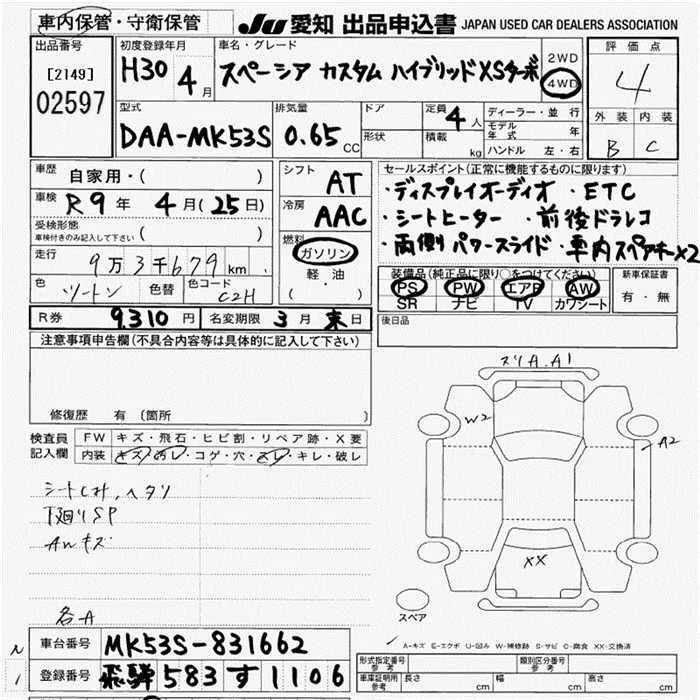 車内保管・守衛保管 JU 愛知 出品申込書 JAPAN USED CAR DEALERS ASSOCIATION
出品番号 [2149] 02597
初度登録年月 H30 4月
車名・グレード スペーシア カスタム ハイブリッドXSターボ
2WD 4WD
評価点 4
型式 DAA-MK53S
排気量 0.65 CC
ドア 形状
定員 4 人
積載 kg
ディーラー・並行
モデル年式 年
ハンドル 左・右
外装 内装
B C
車歴 自家用・( )
車検 R9年 4月(25日)
受検形態 車検付きのみ記入して下さい ( )
走行 9万3千679 km
色 ツートン 色替 色コード C2H
シフト AT
冷房 AAC
燃料 ガソリン
軽油
( ・ )
セールスポイント(正常に機能するものに限ります)
・ディスプレイオーディオ ・ETC
・シートヒーター ・前後ドラレコ
・両側パワースライド ・車内スペアキー×2
装備品(純正品に限り○をつけてください)
PS PW エアB AW
SR ナビ TV カワシート
新車保証書
有・無
R券 9.310円 名変期限 3月末日
後日品
注意事項申告欄(不具合内容等は具体的に記入して下さい)
修復歴 有 (箇所 )
検査員記入欄 FW キズ・飛石・ヒビ割・リペア跡・X要
内装 キズ・汚レ・コゲ・穴・スレ・キレ・破レ
下廻りSP
AWキズ
各A
スリA.A1
W2
A2
XX
スペア
A-キズ E-エクボ U-凹み W-補修跡 S-サビ C-腐食 XX-交換済
車台番号 MK53S-831662
登録番号 飛騨 583 す 1106
形式指定番号 参考 類別区分番号 参考
車庫証明用 参考 長さ cm 幅 cm 高さ cm